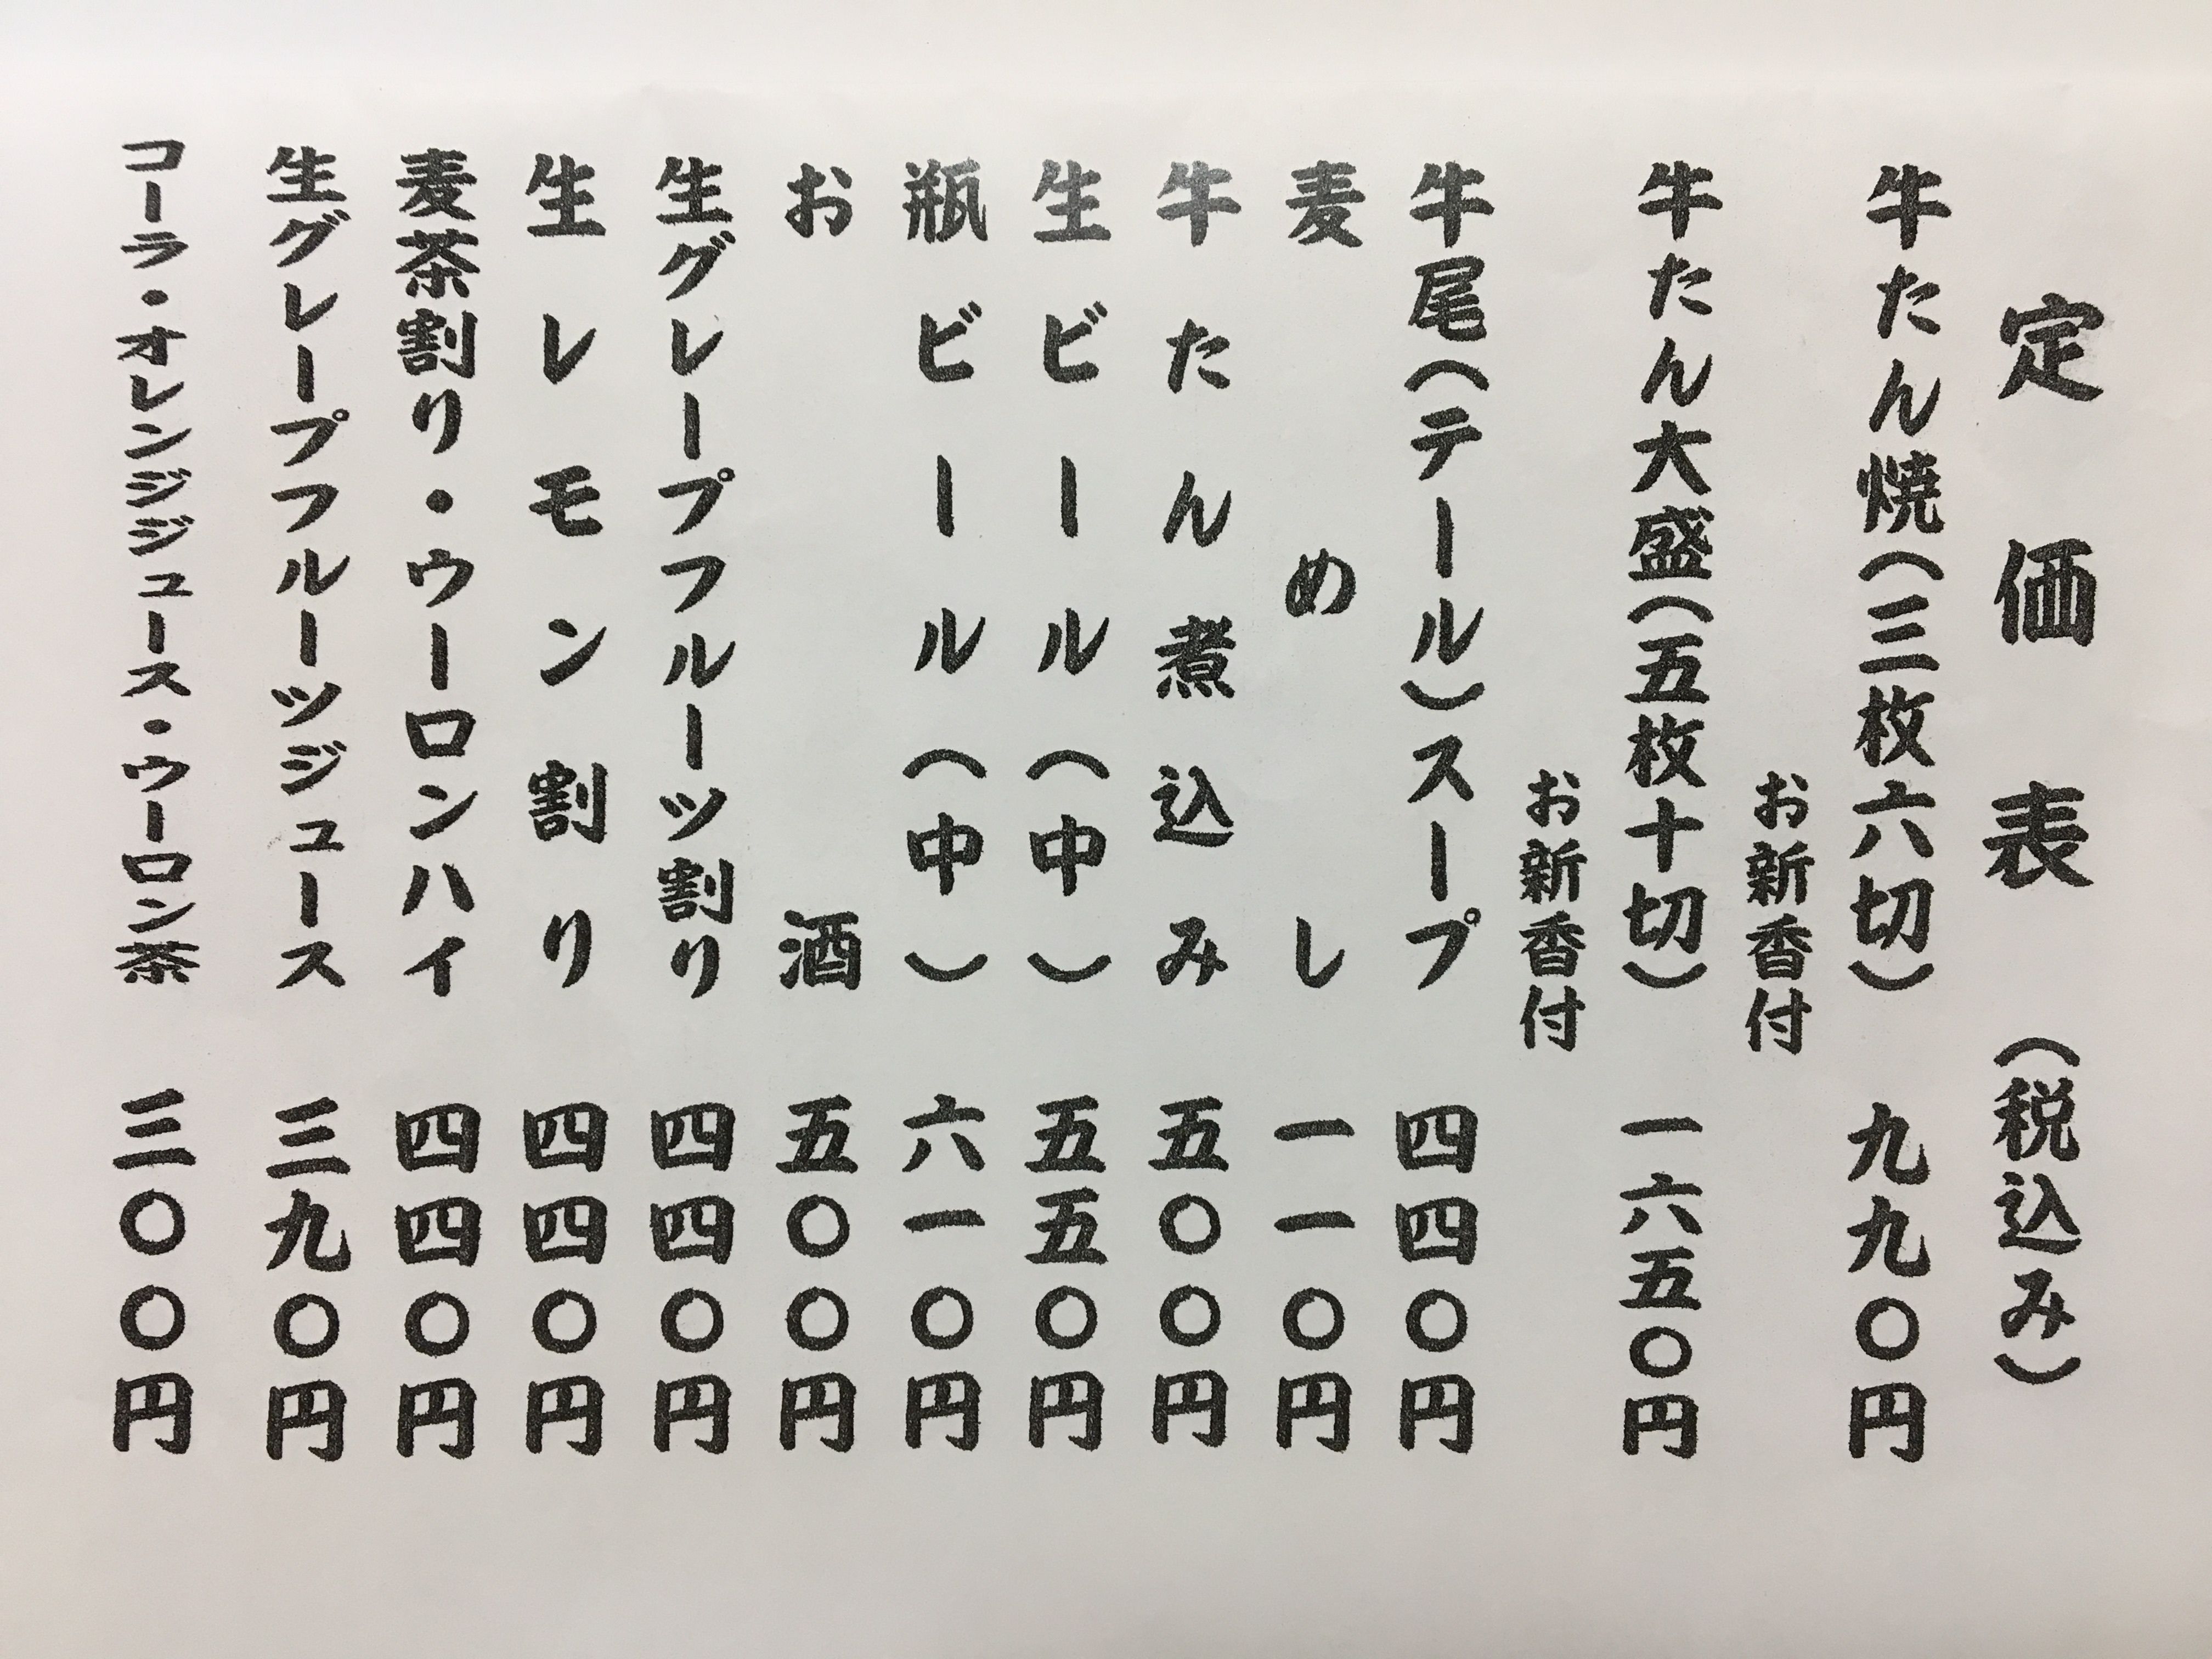 定価表（税込み）
牛たん焼（三枚六切）九九〇円
お新香付
牛たん大盛（五枚十切）一六五〇円
お新香付
牛尾（テール）スープ 四四〇円
麦めし 一一〇円
牛たん煮込み 五〇〇円
生ビール（中）五五〇円
瓶ビール（中）六一〇円
お酒 五〇〇円
生グレープフルーツ割り 四四〇円
生レモン割り 四四〇円
麦茶割り・ウーロンハイ 四四〇円
生グレープフルーツジュース 三九〇円
コーラ・オレンジジュース・ウーロン茶 三〇〇円